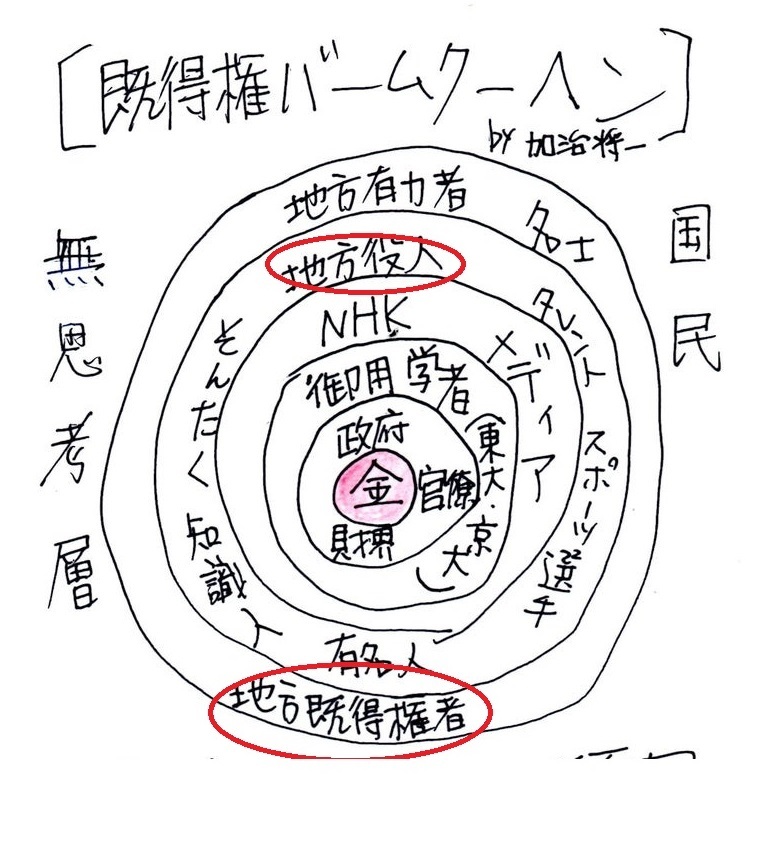 [既得権バームクーヘン]
by 加治将一
地方有力者
名士
地方役人
タレント
NHK
メディア
そんたく
御用学者
(東大・京大)
政府
金
官僚
財界
スポーツ選手
知識人
有名人
地方既得権者
国民
無思考層